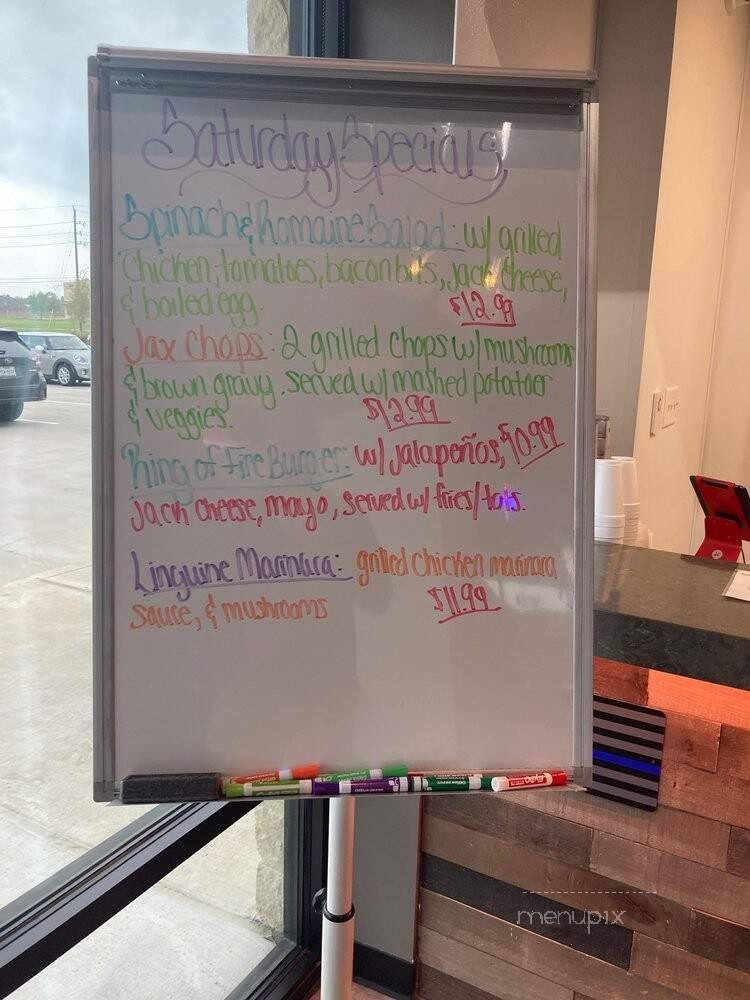 Saturday Specials
Spinach & Romaine Salad: w/ grilled
Chicken, tomatoes, bacon bits, jack cheese,
& boiled egg. $12.99
Jax Chops: 2 grilled chops w/ mushrooms
& brown gravy. served w/ mashed potatoer
& veggies. $12.99
Ring of Fire Burger: w/ Jalapeños, $10.99
Jack cheese, mayo, served w/ fries/tots.
Linguine Marinara: grilled chicken marinara
sauce, & mushrooms $11.99
menupix